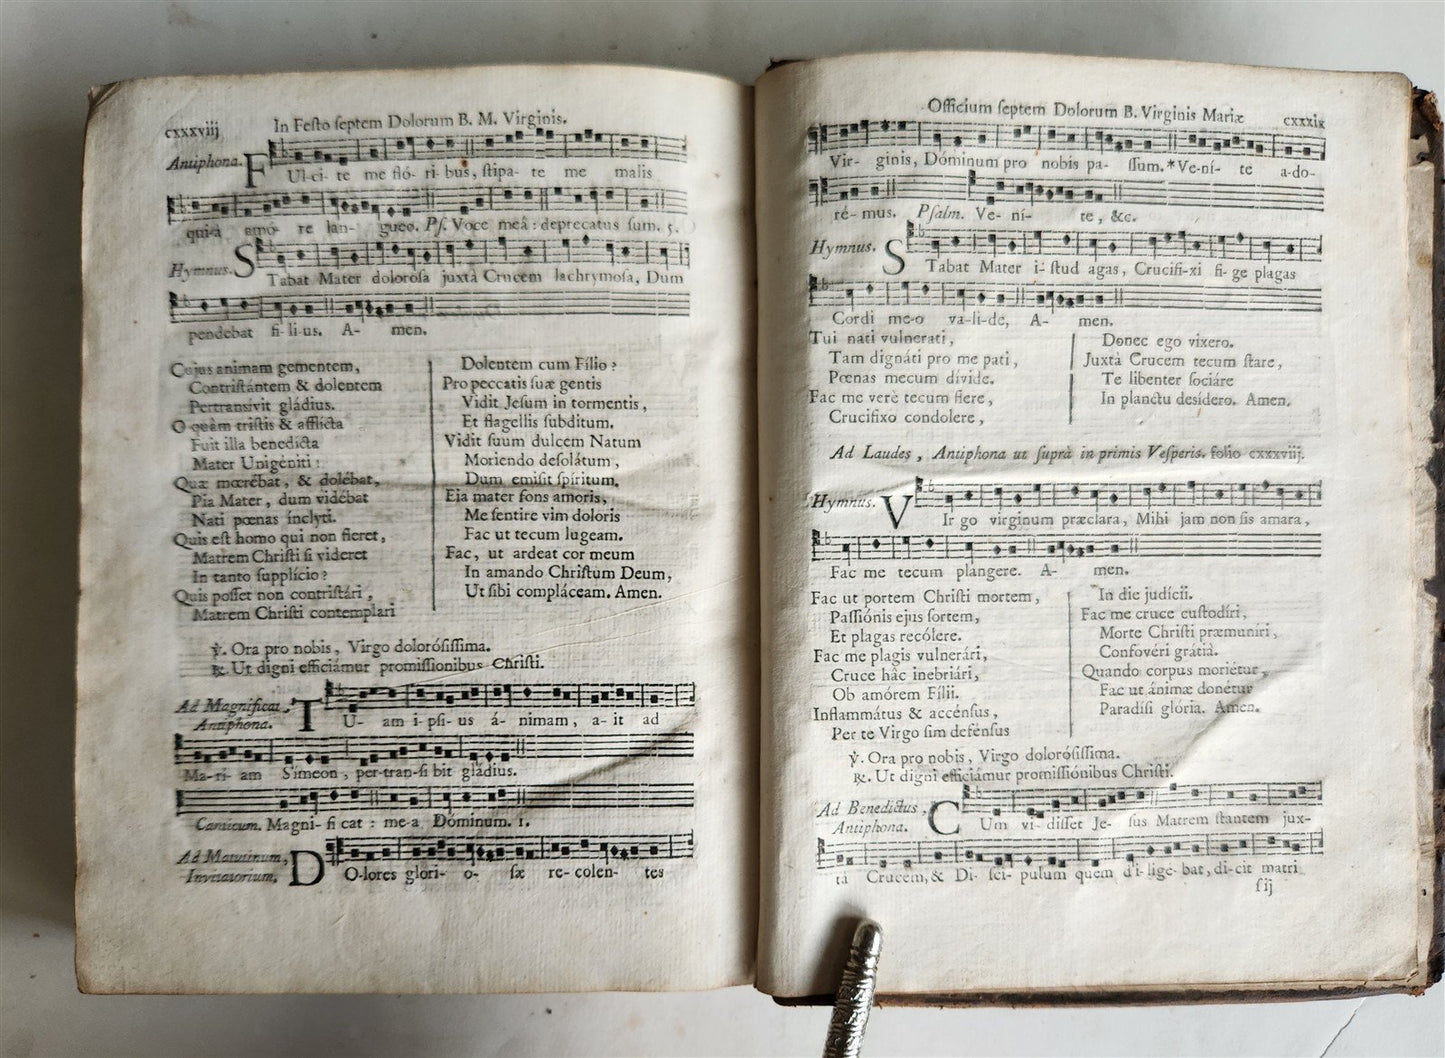 cxxxviij
In Festo septem Dolorum B. M. Virginis.
Antiphona. F Ul-ci-te me fló-ri-bus, stipa-te me malis
quià amó-re lan-gueo. Ps. Voce meâ: deprecatus sum. 5.
Hymnus. S Tabat Mater dolorósa juxtà Crucem lachrymósa, Dum
pendebat fi-li-us. A-men.
Cujus animam gementem,
Contristántem & dolentem
Pertransívit gládius.
O quàm tristis & afflícta
Fuit illa benedícta
Mater Unigéniti:
Quæ mœrébat, & dolébat,
Pia Mater, dum vidébat
Nati pœnas ínclyti.
Quis est homo qui non fleret,
Matrem Christi si videret
In tanto supplício?
Quis posset non contristári,
Matrem Christi contemplari
Dolentem cum Fílio?
Pro peccatis suæ gentis
Vidit Jesum in tormentis,
Et flagellis subditum.
Vidit suum dulcem Natum
Moriendo desolátum,
Dum emisit spíritum.
Eia mater fons amoris,
Me sentire vim doloris
Fac ut tecum lugeam.
Fac, ut ardeat cor meum
In amando Christum Deum,
Ut sibi compláceam. Amen.
℣. Ora pro nobis, Virgo dolorósissima.
℟. Ut digni efficiámur promissionibus Christi.
Ad Magnificat, Antiphona. T U-am i-psi-us á-nimam, a-it ad
Ma-ri-am Símeon, per-tran-si bit gládius.
Canticum. Magni-fi cat: me-a Dóminum. 1.
Ad Matutinum, Invitatorium. D O-lores glori-o-sæ re-colen-tes
Officium septem Dolorum B. Virginis Mariæ
cxxxix
Vir-ginis, Dóminum pro nobis pa-ssum. * Ve-ní-te a-do-
ré-mus. Psalm. Ve-ní-te, &c.
Hymnus. S Tabat Mater i-stud agas, Crucifi-xi fi-ge plagas
Cordi me-o va-li-de, A-men.
Tui nati vulnerati,
Tam dignáti pro me pati,
Pœnas mecum dívide.
Fac me verè tecum flere,
Crucifixo condolere,
Donec ego vixero.
Juxtà Crucem tecum stare,
Te libenter sociáre
In planctu desídero. Amen.
Ad Laudes, Antiphona ut suprà in primis Vesperis. folio cxxxviij.
Hymnus. V Ir go virginum præclara, Mihi jam non sis amara,
Fac me tecum plangere. A-men.
Fac ut portem Christi mortem,
Passiónis ejus sortem,
Et plagas recólere.
Fac me plagis vulnerári,
Cruce hâc inebriári,
Ob amórem Fílii.
Inflammátus & accénsus,
Per te Virgo sim defénsus
In die judícii.
Fac me cruce custodíri,
Morte Christi præmuníri,
Confovéri grátiâ.
Quando corpus moriétur,
Fac ut ánimæ donétur
Paradísi glória. Amen.
℣. Ora pro nobis, Virgo dolorósissima.
℟. Ut digni efficiámur promissiónibus Christi.
Ad Benedictus, Antiphona. C Um vi-disset Je-sus Matrem stantem jux-
tà Crucem, & Di-sci-pulum quem di-lige-bat, di-cit matri
sij